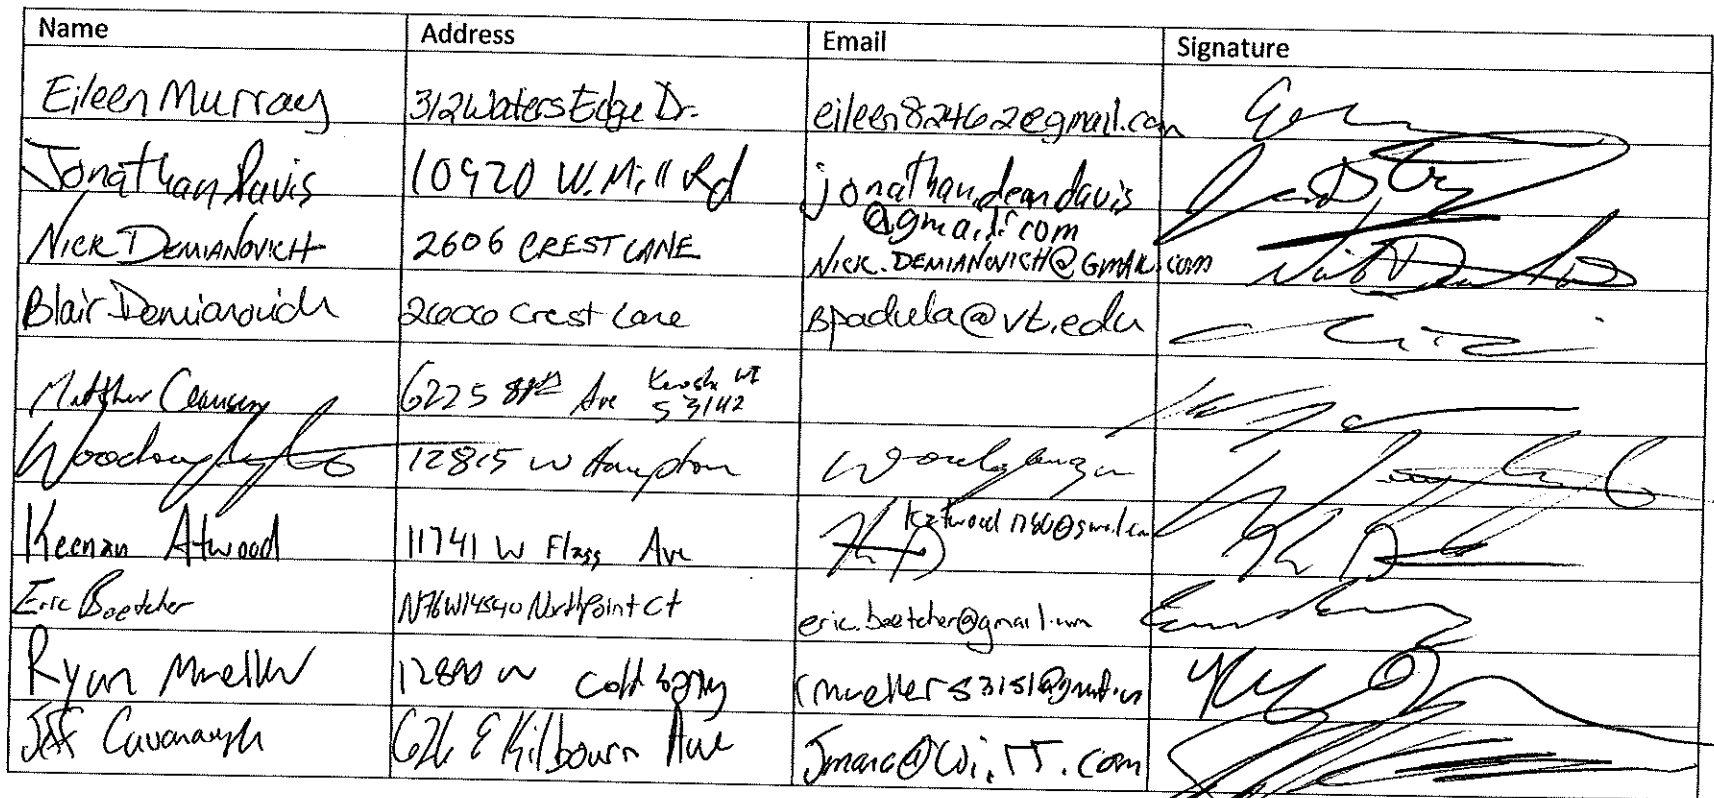 Name Address Email Signature
Eileen Murray 312 Waters Edge Dr. eileen82462@gmail.com
Jonathan Davis 10920 W. Mill Rd jonathan.dean.davis
@gmail.com
Nick Demianovich 2606 CREST LANE Nick.DEMIANOVICH@GMAIL.com
Blair Demianovich 2606 Crest Lane Bpadula@vt.edu
Matthew 6225 Ave Kenosha WI
53142
12815 W Hampton
Keenan Atwood 11741 W Flagg Ave katwood1780@gmail.com
Eric Boetcher N76W14540 NorthPoint Ct eric.boetcher@gmail.com
Ryan Mueller 12800 W Cold Spring rmueller53151@gmail.com
Jeff Cavanaugh 626 E Kilbourn Ave